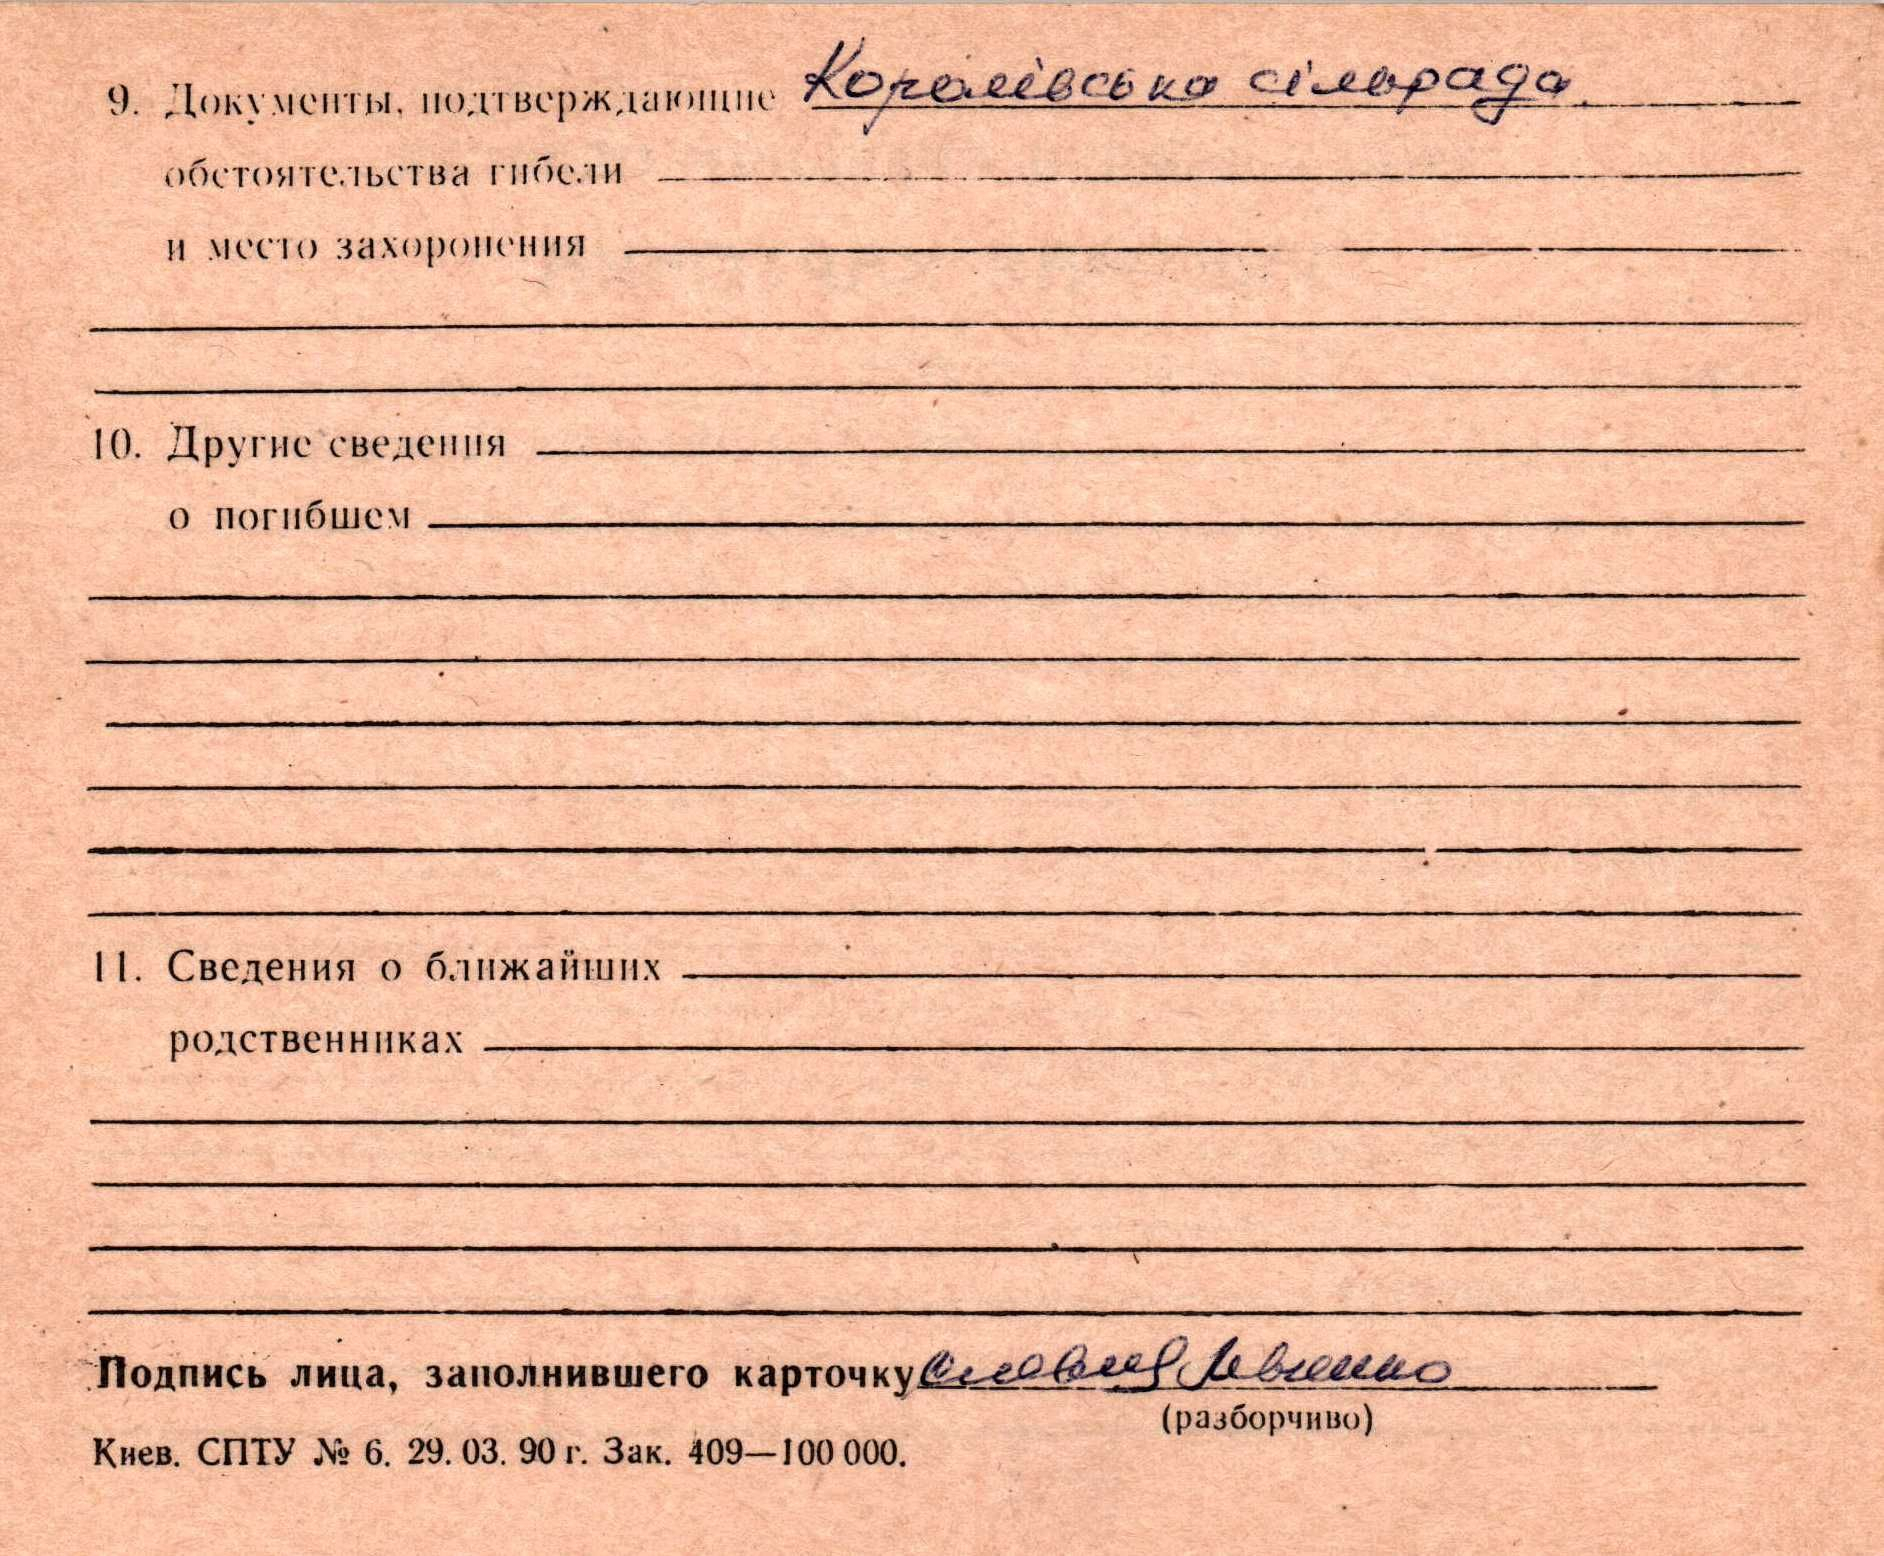 9. Документы, подтверждающие Королівська сільрада
обстоятельства гибели
и место захоронения
10. Другие сведения
о погибшем
11. Сведения о ближайших
родственниках
Подпись лица, заполнившего карточку
(разборчиво)
Киев. СПТУ № 6. 29. 03. 90 г. Зак. 409—100 000.